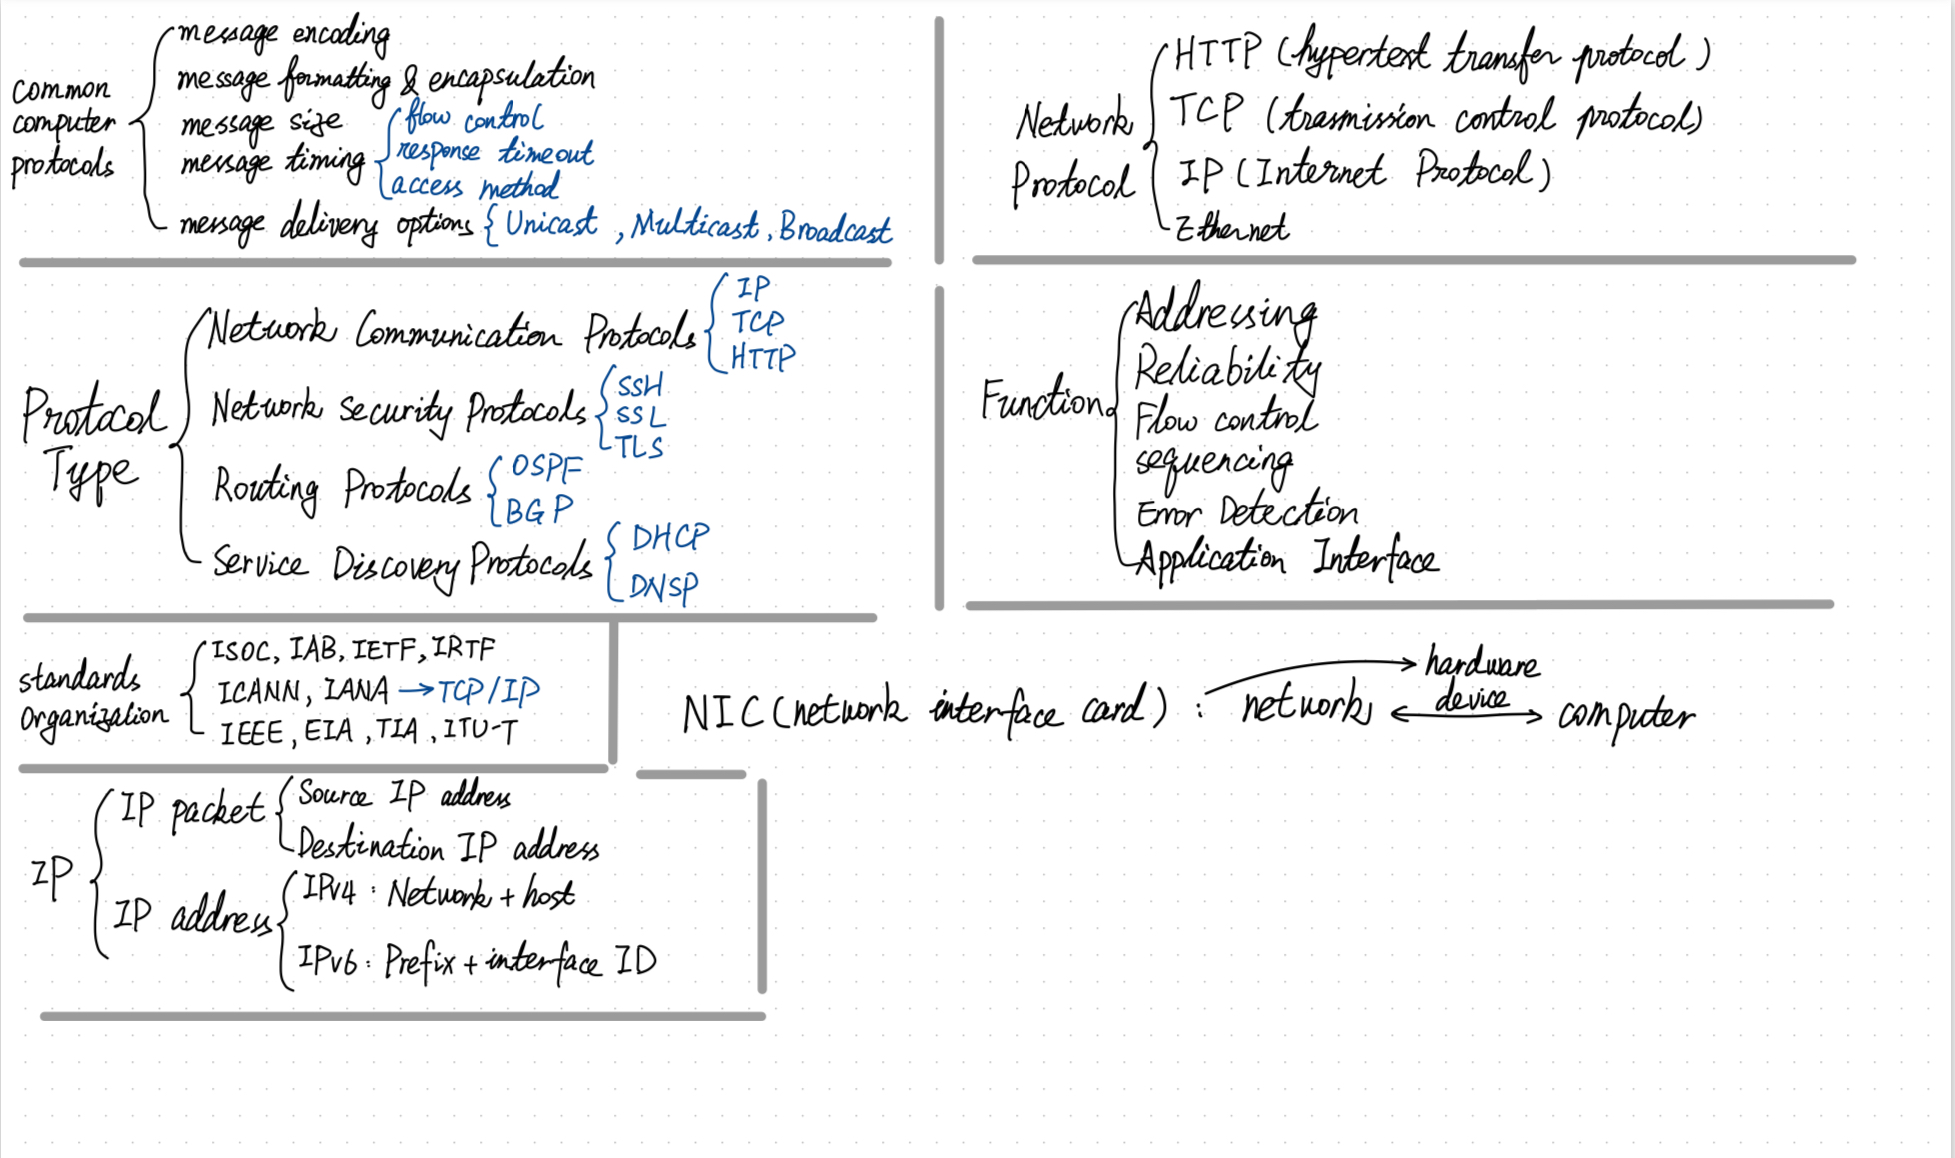 common
computer
protocols
message encoding
message formatting & encapsulation
message size
message timing
flow control
response timeout
access method
message delivery options { Unicast , Multicast, Broadcast
Network
Protocol
HTTP (hypertext transfer protocol)
TCP (trasmission control protocol)
IP (Internet Protocol)
Ethernet
Protocol
Type
Network Communication Protocols
IP
TCP
HTTP
Network Security Protocols
SSH
SSL
TLS
Routing Protocols
OSPF
BGP
Service Discovery Protocols
DHCP
DNSP
Function
Addressing
Reliability
Flow control
sequencing
Error Detection
Application Interface
standards
Organization
ISOC, IAB, IETF, IRTF
ICANN, IANA → TCP/IP
IEEE, EIA, TIA, ITU-T
NIC (network interface card) : network ↔ computer
hardware
device
IP
IP packet
Source IP address
Destination IP address
IP address
IPv4 : Network + host
IPv6 : Prefix + interface ID